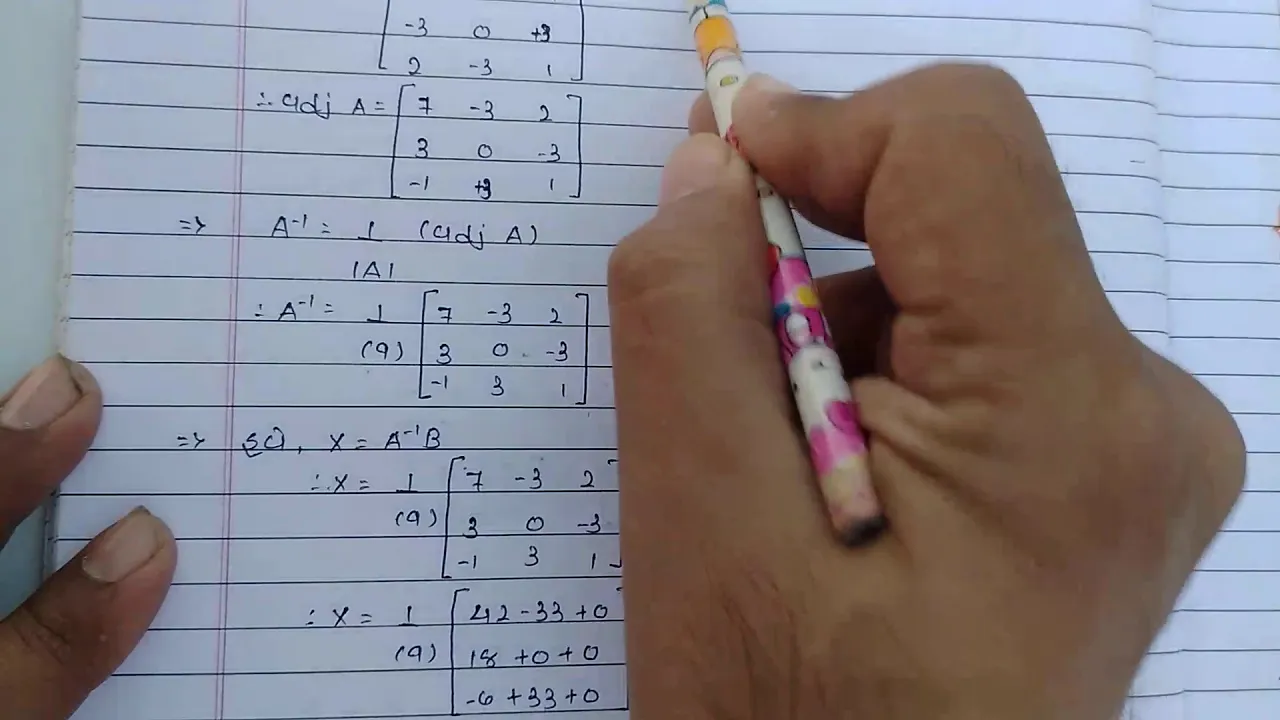 -3 0 +3
2 -3 1
∴ adj A = [ 7 -3 2
3 0 -3
-1 +3 1 ]
=> A⁻¹ = 1 (adj A)
|A|
∴ A⁻¹ = 1 [ 7 -3 2
(9) 3 0 -3
-1 3 1 ]
=> so, X = A⁻¹B
∴ X = 1 [ 7 -3 2
(9) 3 0 -3
-1 3 1 ]
∴ X = 1 [ 42 - 33 + 0
(9) 18 + 0 + 0
-6 + 33 + 0